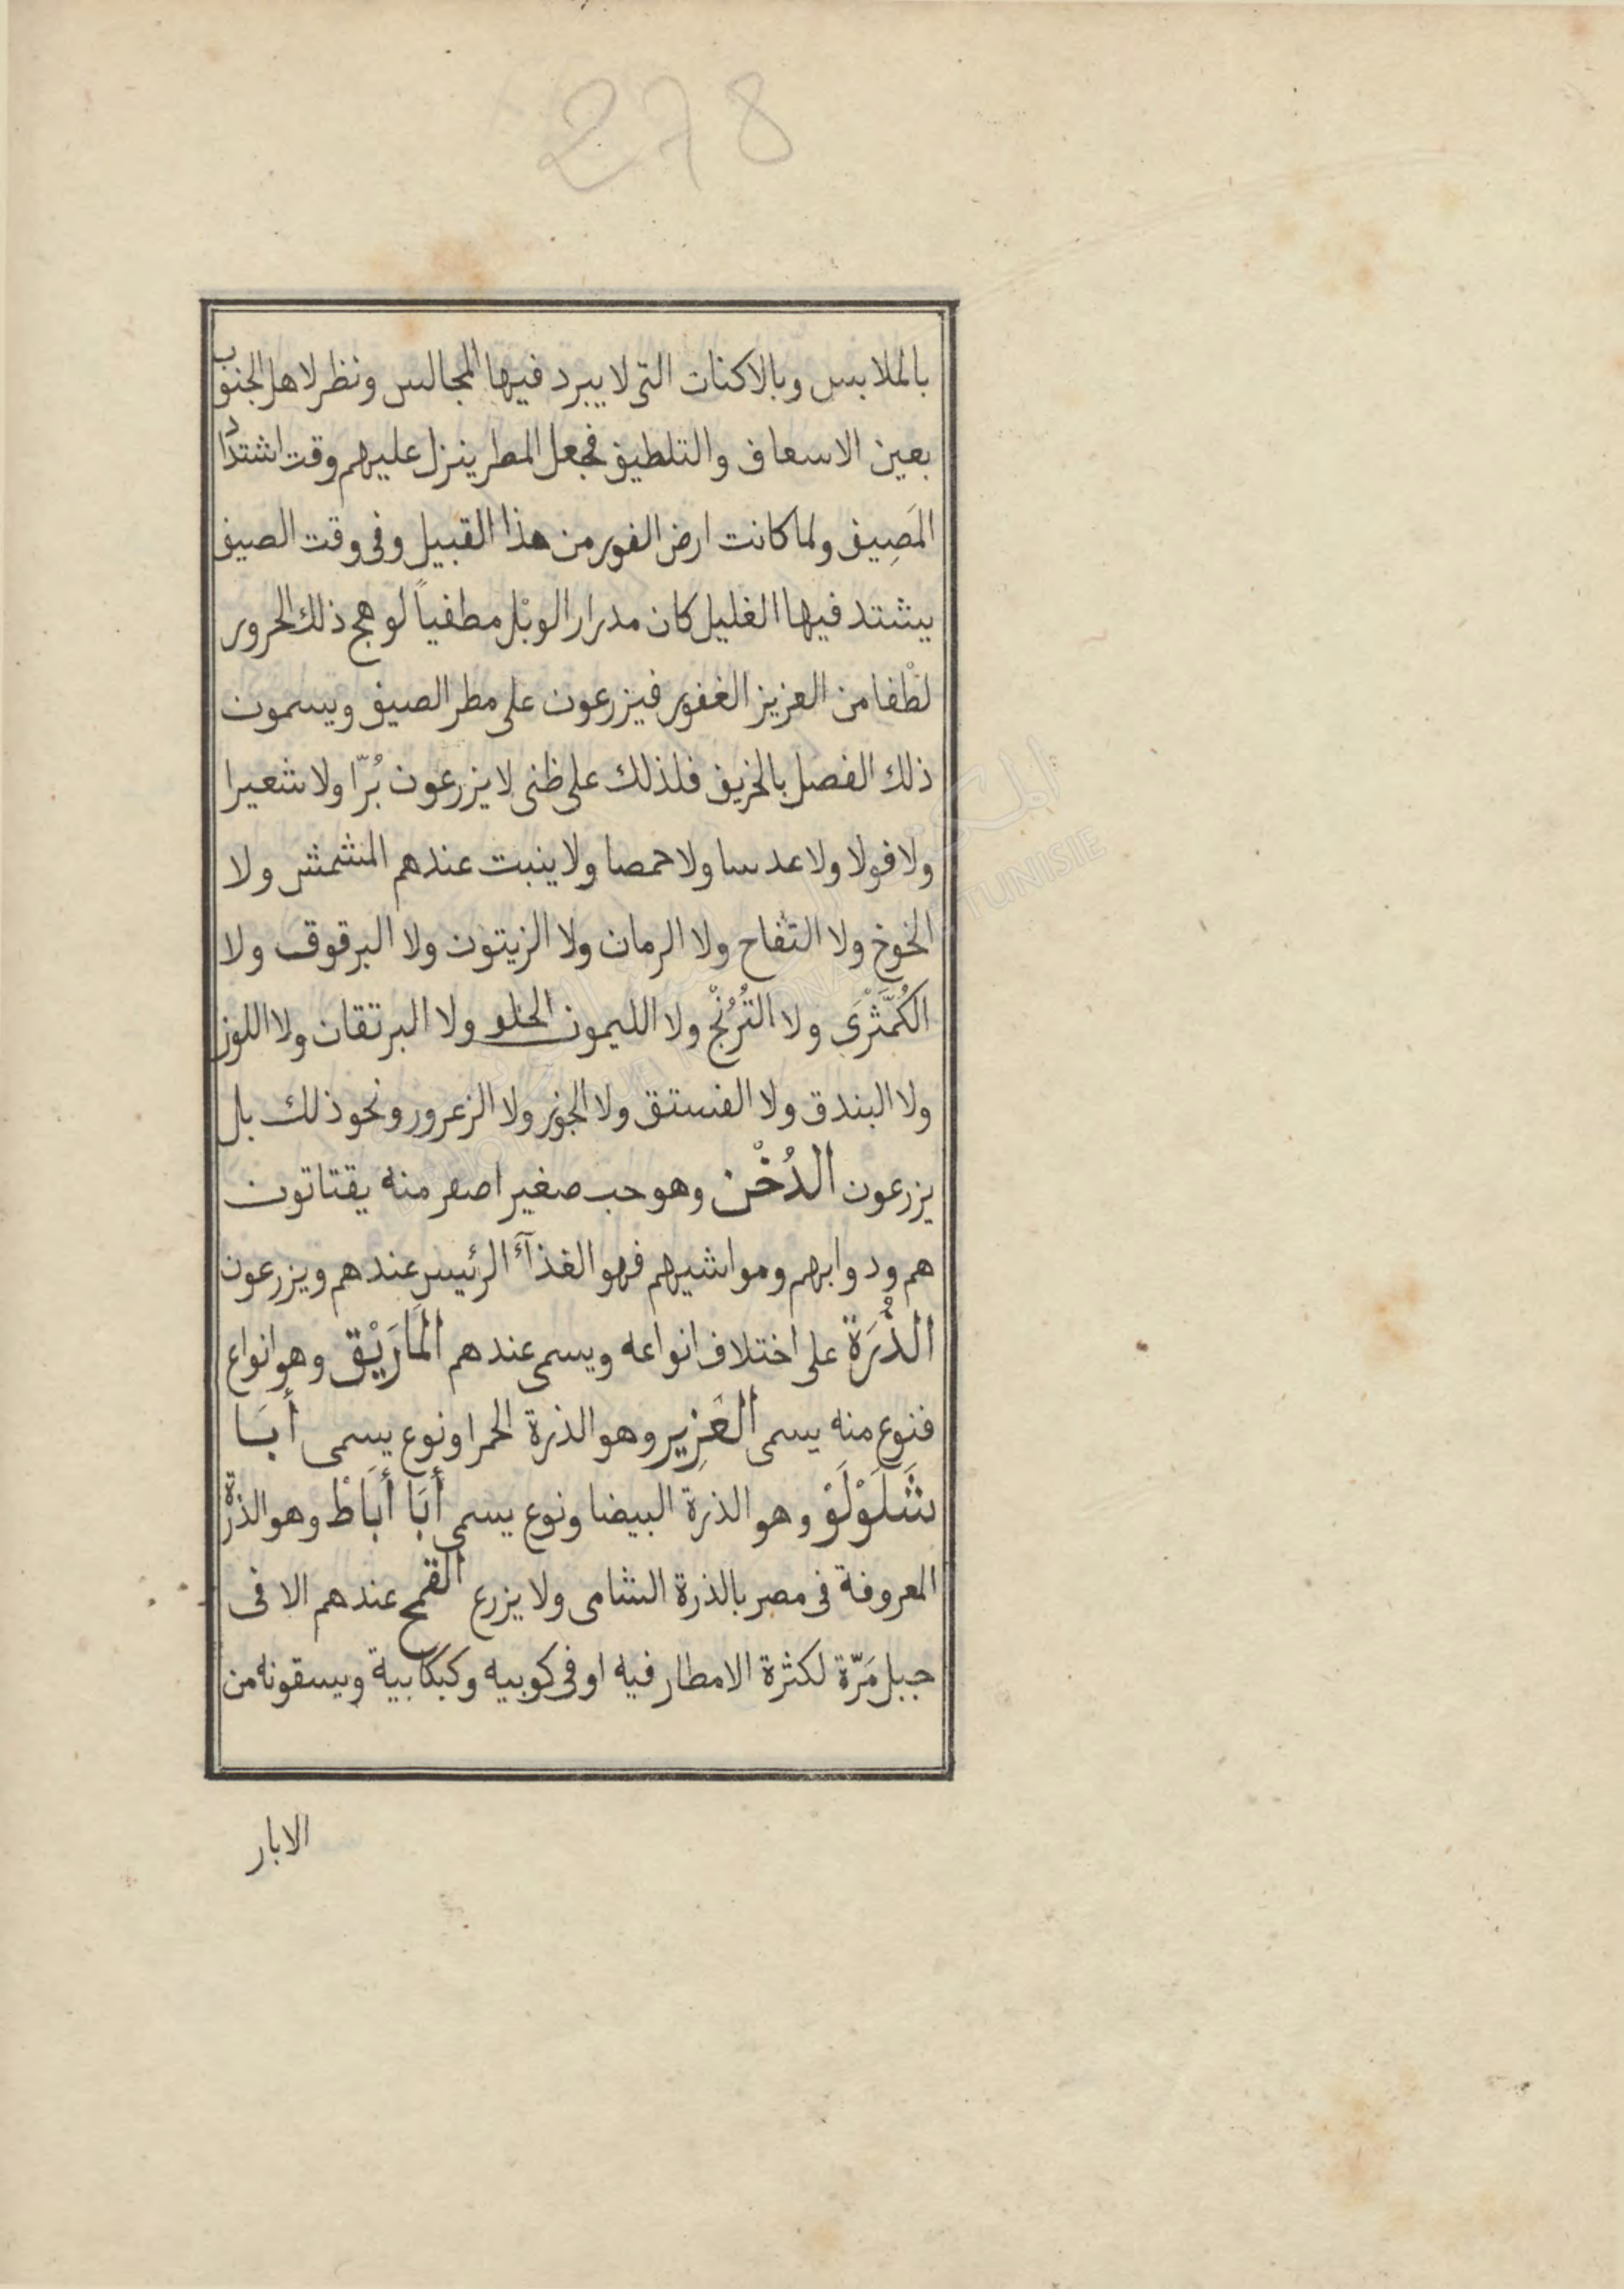 278
بالملابس وبالاكنات التى لا يبرد فيها المجالس ونظر لاهل الجنوب
بعين الاسعاف والتلطيف فجعل المطر ينزل عليهم وقت اشتداد
المَصِيف ولما كانت ارض الفور من هذا القبيل وفى وقت الصيف
يشتد فيها الغليل كان مدرار الوبْل مطفياً لوهج ذلك الحرور
لطْفا من العزيز الغفور فيزرعون على مطر الصيف ويسمون
ذلك الفصل بالخريف فلذلك على ظنى لا يزرعون بُرّا ولا شعيرا
ولا فولا ولا عدسا ولا حمصا ولا ينبت عندهم المشمش ولا
الخوخ ولا التفاح ولا الرمان ولا الزيتون ولا البرقوق ولا
الكُمَّثْرَى ولا التُرُنْجْ ولا الليمون الحلو ولا البرتقان ولا اللوز
ولا البندق ولا الفستق ولا الجوز ولا الزعرور ونحو ذلك بل
يزرعون الدُخْن وهو حب صغير اصفر منه يقتاتون
هم ودوابهم ومواشيهم فهو الغذآء الرئيس عندهم ويزرعون
الذُّرَة على اختلاف انواعه ويسمى عندهم المَارَيْق وهو انواع
فنوع منه يسمى العَزِير وهو الذرة الحمرا ونوع يسمى أَبَا
شَلَوْلَوْ وهو الذرة البيضا ونوع يسمى أَبَا أَبَاطْ وهو الذرة
المعروفة فى مصر بالذرة الشامى ولا يزرع القمح عندهم الا فى
جبل مَرّة لكثرة الامطار فيه او فى كوبيه وكبكابية ويسقونه من
الابار
المكتبة
TUNISIE